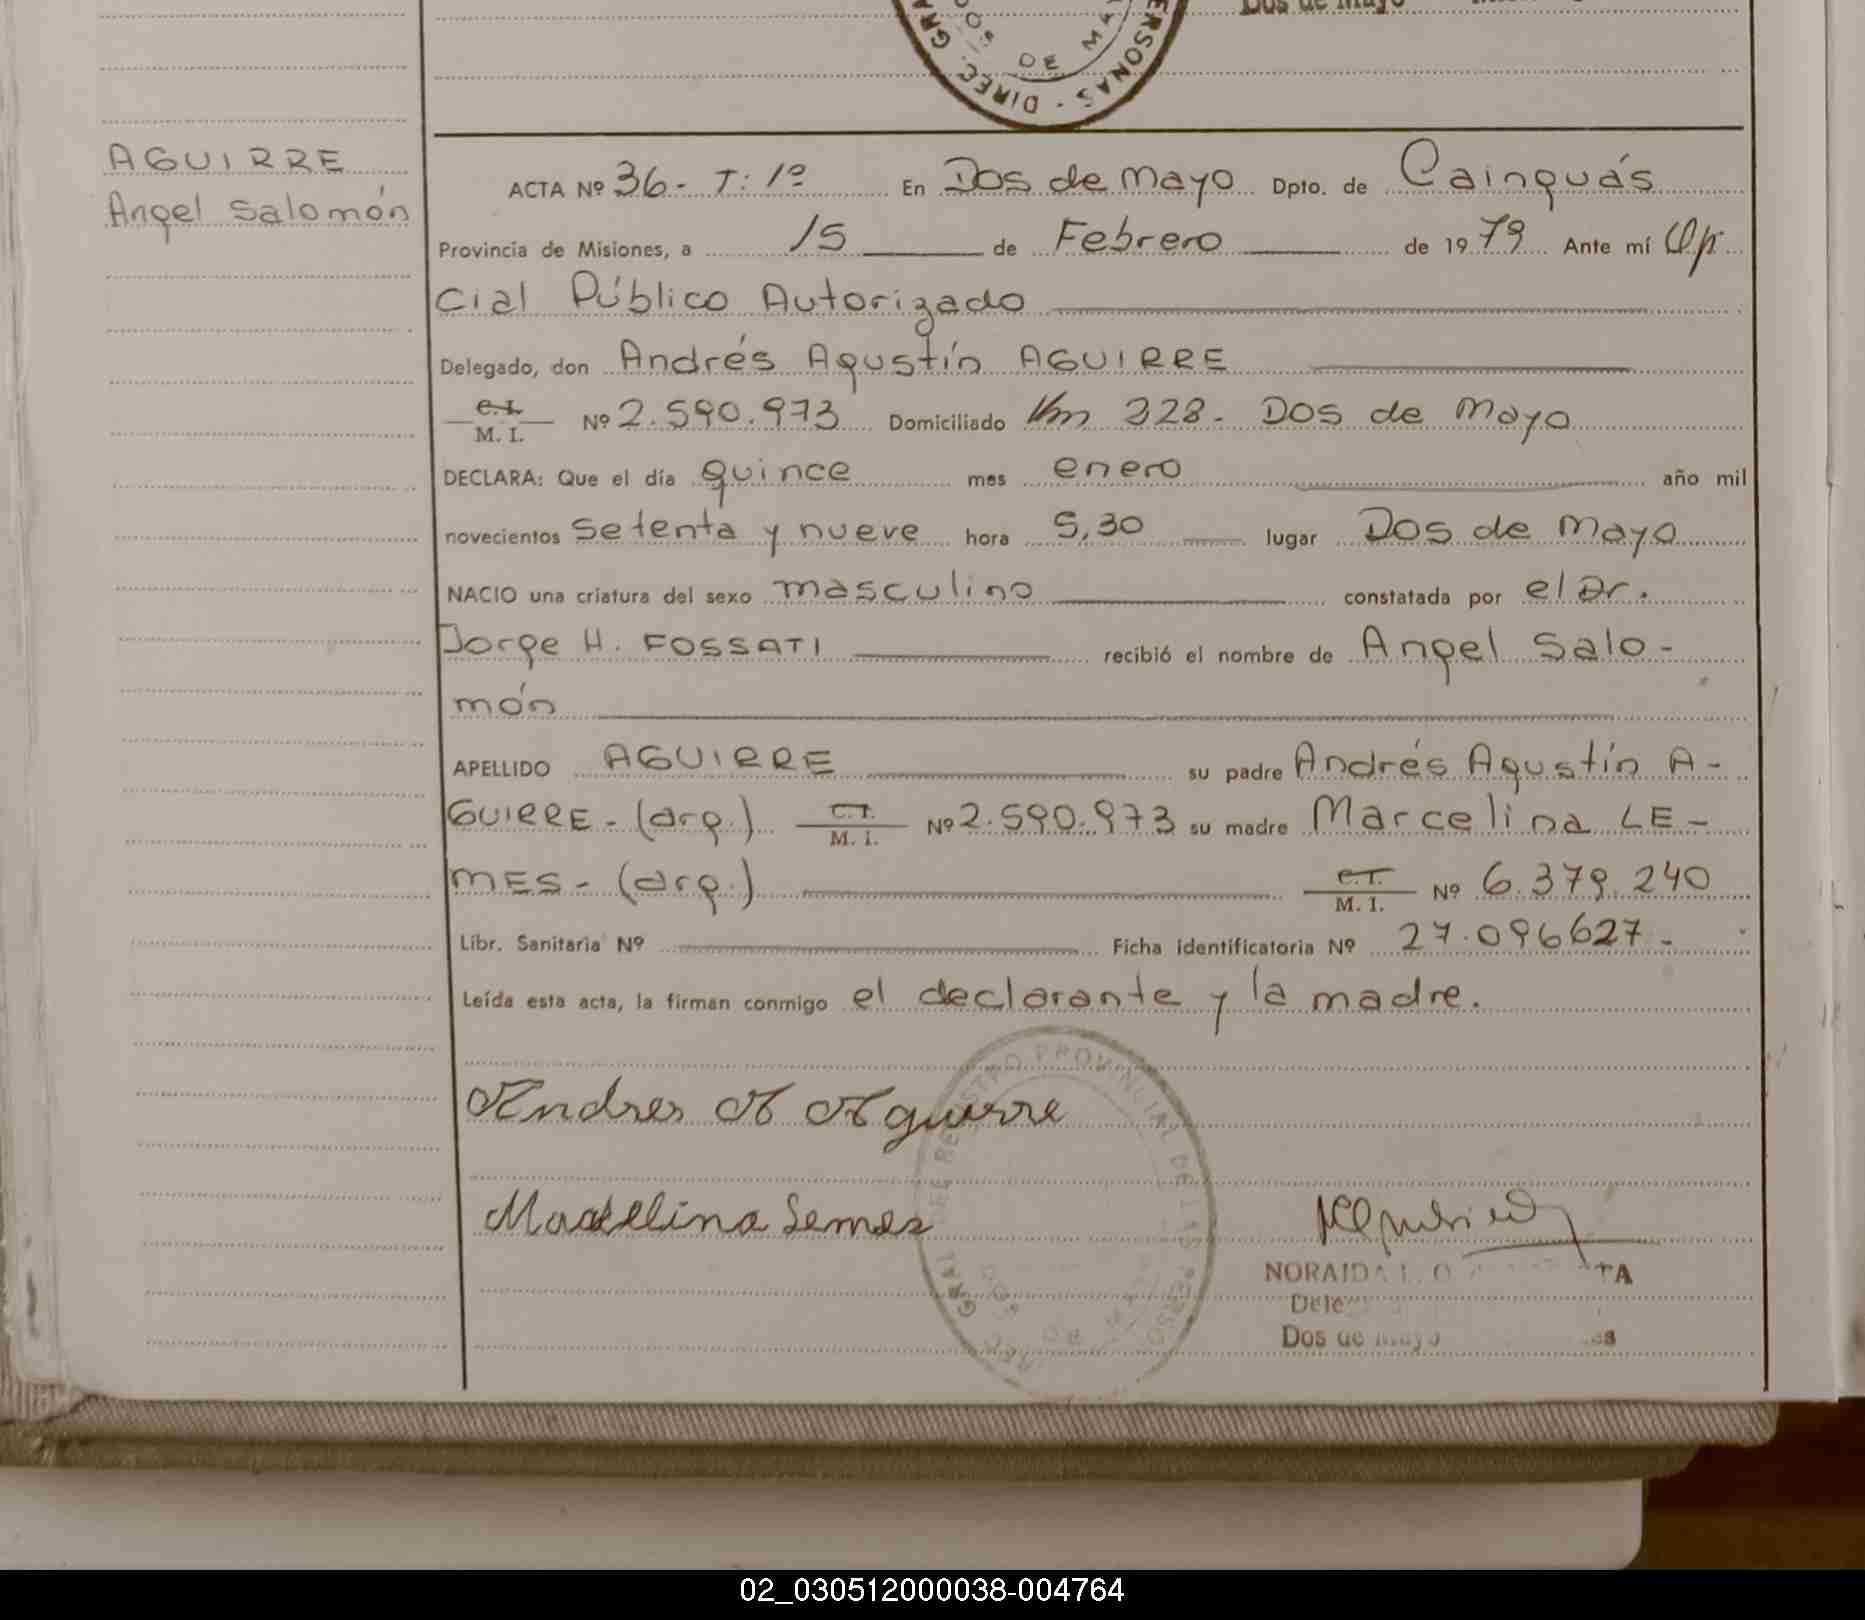 Dos de Mayo
ERSONAS - DIREC. GRA
DOS DE MA
AGUIRRE
Angel Salomón
ACTA Nº 36- T: 1º En Dos de Mayo Dpto. de Cainguás
Provincia de Misiones, a 15 de Febrero de 1979 Ante mí Ofi
cial Público Autorizado
Delegado, don Andrés Agustín AGUIRRE
C.I. M. I. Nº 2.590.973 Domiciliado Km 328- Dos de Mayo
DECLARA: Que el día quince mes enero año mil
novecientos setenta y nueve hora 5,30 lugar Dos de Mayo
NACIO una criatura del sexo masculino constatada por el Dr.
Jorge H. FOSSATI recibió el nombre de Angel Salo-
món
APELLIDO AGUIRRE su padre Andrés Agustín A-
GUIRRE-(arg.) C.I. M. I. Nº 2.590.973 su madre Marcelina LE-
MES-(arg.) C.I. M. I. Nº 6.379.240
Libr. Sanitaria Nº Ficha identificatoria Nº 27.096627-
Leída esta acta, la firman conmigo el declarante y la madre.
Andres A Aguirre
Marcelina Lemes
REGISTRO PROVINCIAL DE LAS PERSO
GRAL
NORAIDA
Dele
Dos de Mayo
02_030512000038-004764